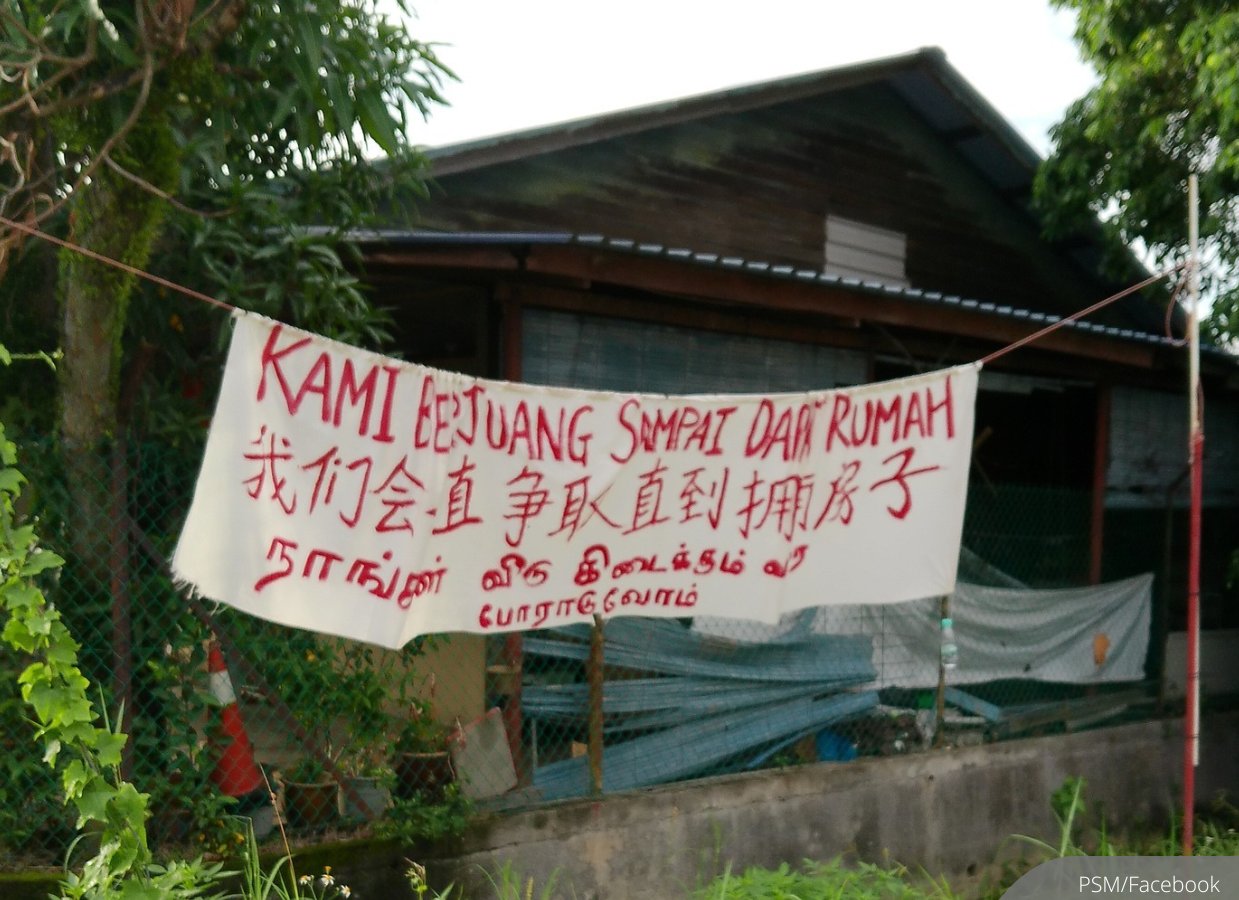 KAMI BERJUANG SAMPAI DAPAT RUMAH
我们会一直争取直到拥房子
நாங்கள் வீடு கிடைக்கும் வரை
போராடுவோம்
PSM/Facebook